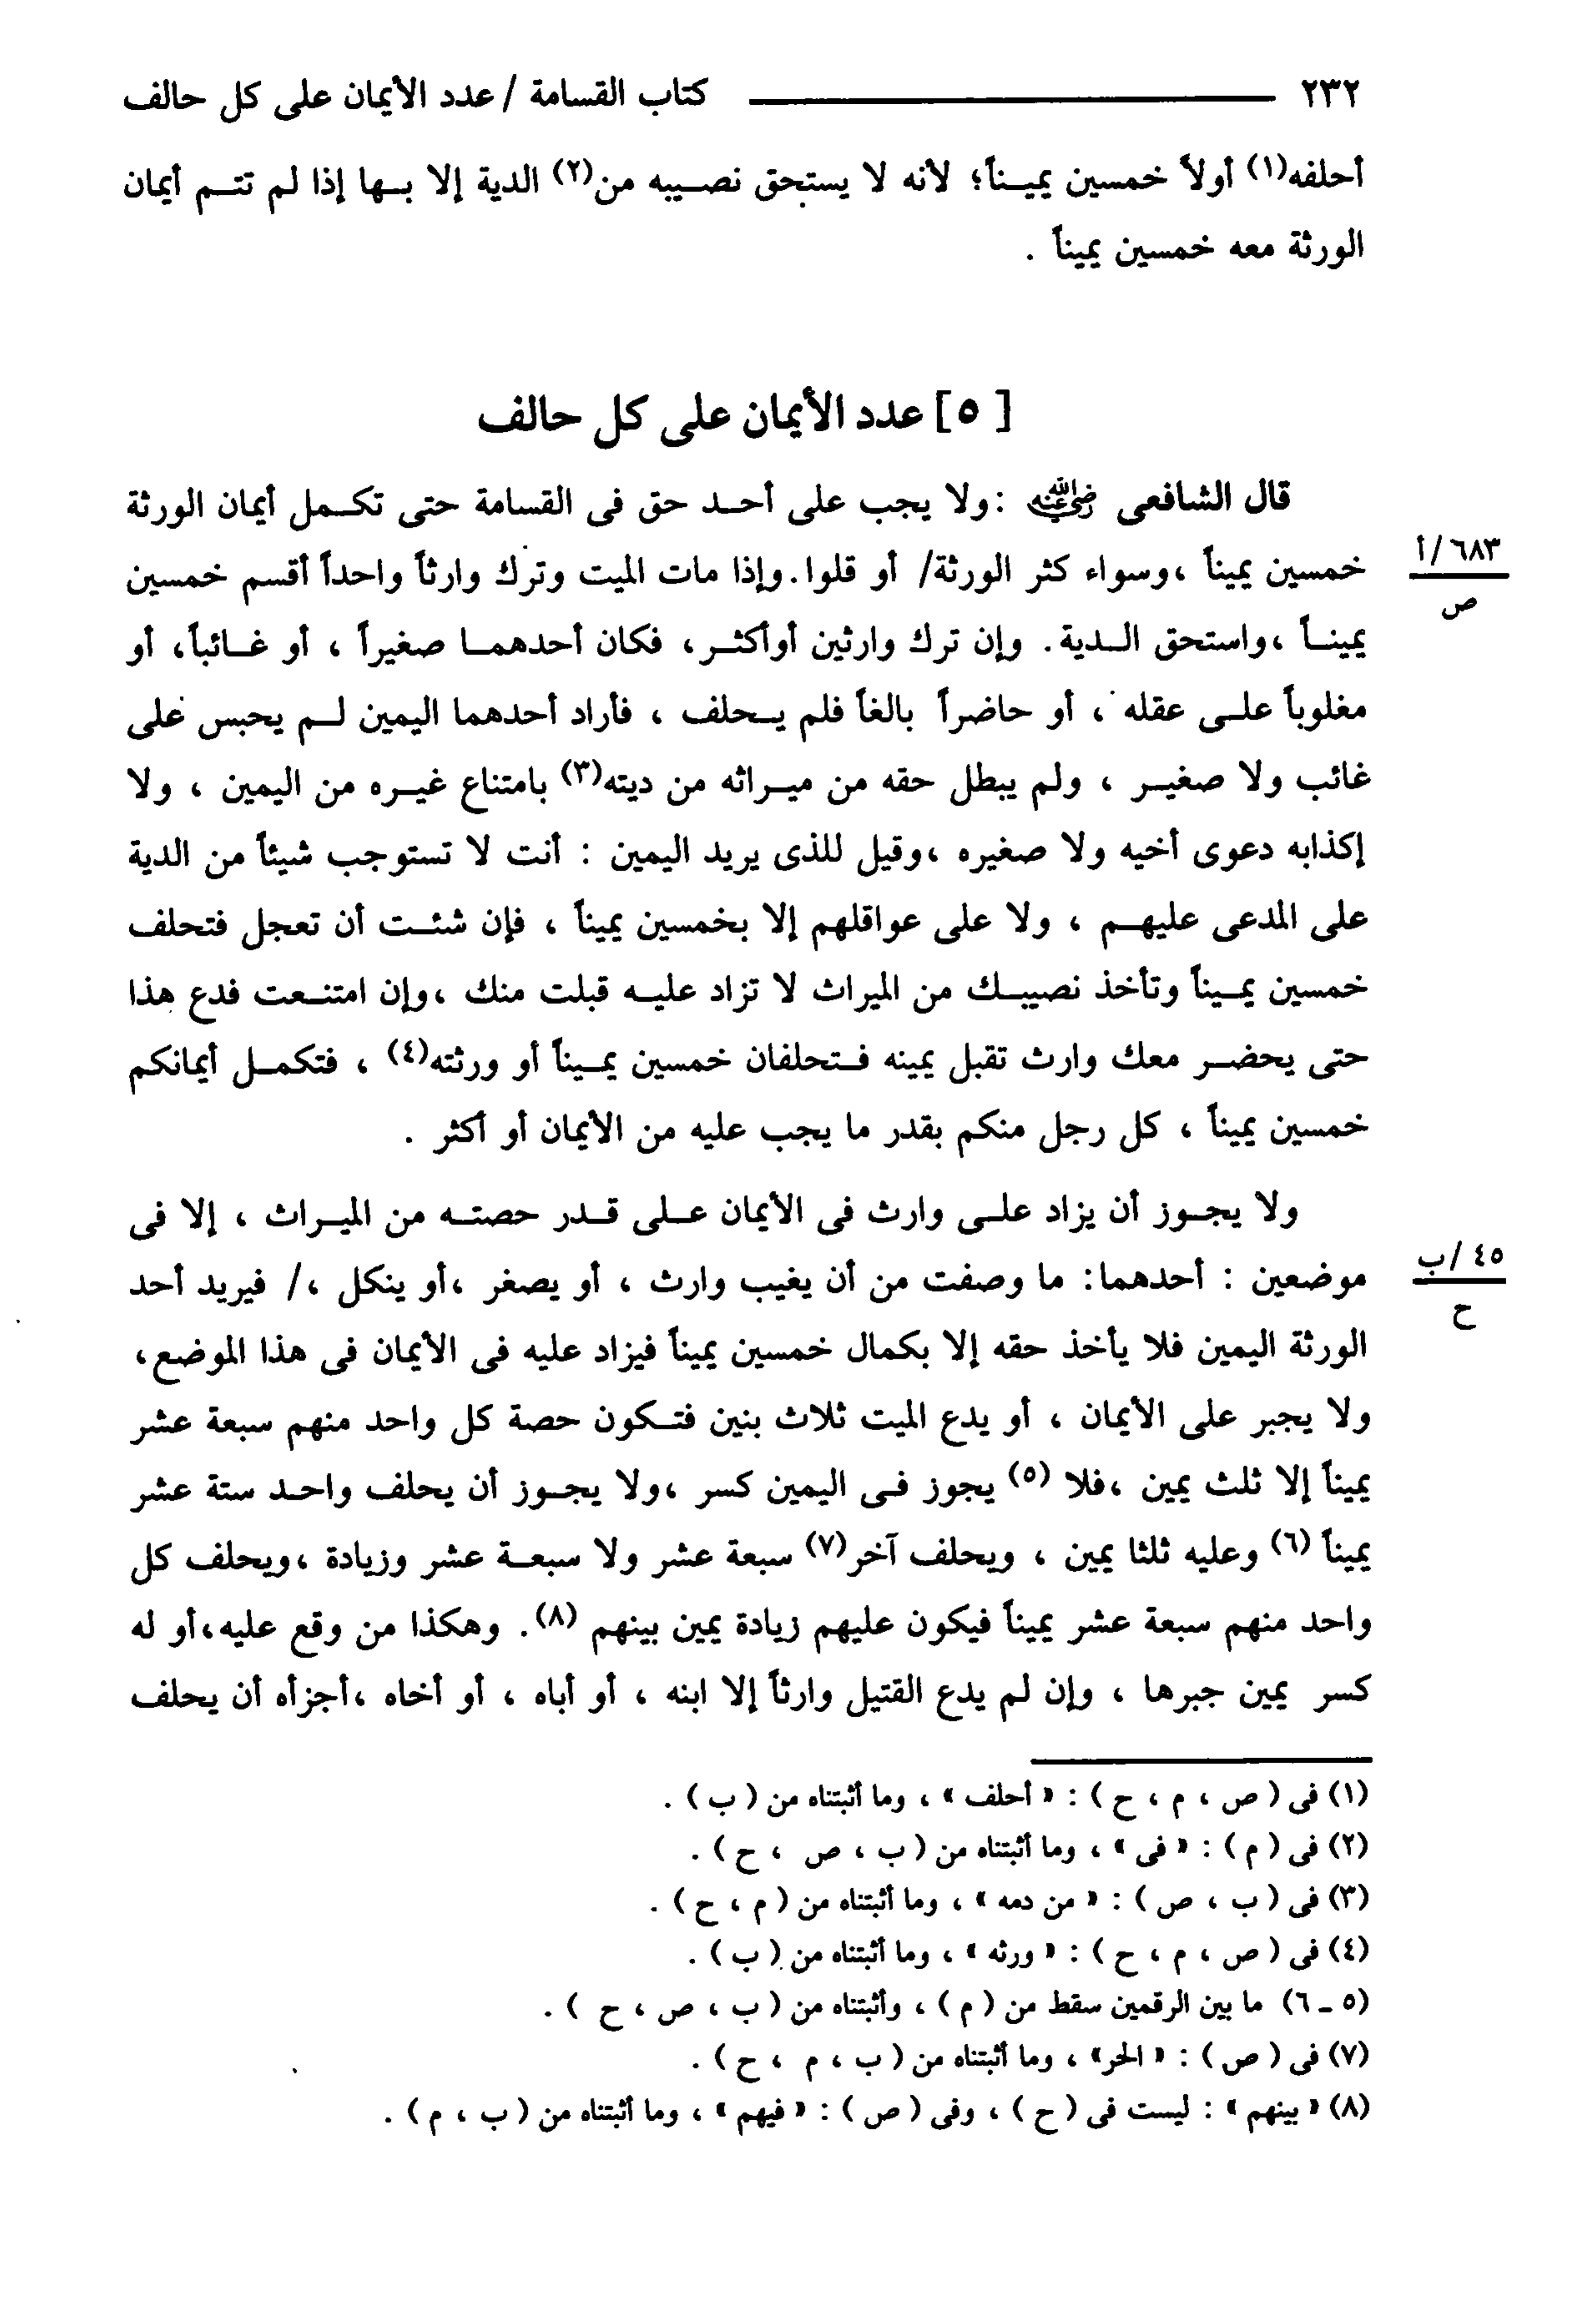 ٢٣٢ كتاب القسامة / عدد الأيمان على كل حالف
أحلفه(١) أولاً خمسين يميناً؛ لأنه لا يستحق نصيبه من(٢) الدية إلا بها إذا لم تتم أيمان
الورثة معه خمسين يميناً .
[ ٥ ] عدد الأيمان على كل حالف
قال الشافعى رضي الله عنه : ولا يجب على أحد حق فى القسامة حتى تكمل أيمان الورثة
خمسين يميناً ، وسواء كثر الورثة/ أو قلوا . وإذا مات الميت وترك وارثاً واحداً أقسم خمسين
٦٨٣/أ
ص
يميناً ، واستحق الدية . وإن ترك وارثين أوأكثر، فكان أحدهما صغيراً ، أو غائباً، أو
مغلوباً على عقله ، أو حاضراً بالغاً فلم يحلف ، فأراد أحدهما اليمين لم يحبس على
غائب ولا صغير ، ولم يبطل حقه من ميراثه من ديته(٣) بامتناع غيره من اليمين ، ولا
إكذابه دعوى أخيه ولا صغيره ، وقيل للذى يريد اليمين : أنت لا تستوجب شيئاً من الدية
على المدعى عليهم ، ولا على عواقلهم إلا بخمسين يميناً ، فإن شئت أن تعجل فتحلف
خمسين يميناً وتأخذ نصيبك من الميراث لا تزاد عليه قبلت منك ، وإن امتنعت فدع هذا
حتى يحضر معك وارث تقبل يمينه فتحلفان خمسين يميناً أو ورثته(٤) ، فتكمل أيمانكم
خمسين يميناً ، كل رجل منكم بقدر ما يجب عليه من الأيمان أو أكثر .
ولا يجوز أن يزاد على وارث فى الأيمان على قدر حصته من الميراث ، إلا فى
موضعين : أحدهما: ما وصفت من أن يغيب وارث ، أو يصغر ، أو ينكل ،/ فيريد أحد
٤٥ /ب
ح
الورثة اليمين فلا يأخذ حقه إلا بكمال خمسين يميناً فيزاد عليه فى الأيمان فى هذا الموضع،
ولا يجبر على الأيمان ، أو يدع الميت ثلاث بنين فتكون حصة كل واحد منهم سبعة عشر
يميناً إلا ثلث يمين ، فلا (٥) يجوز فى اليمين كسر ، ولا يجوز أن يحلف واحد ستة عشر
يميناً (٦) وعليه ثلثا يمين ، ويحلف آخر(٧) سبعة عشر ولا سبعة عشر وزيادة ، ويحلف كل
واحد منهم سبعة عشر يميناً فيكون عليهم زيادة يمين بينهم (٨). وهكذا من وقع عليه، أو له
كسر يمين جبرها ، وإن لم يدع القتيل وارثاً إلا ابنه ، أو أباه ، أو أخاه ، أجزأه أن يحلف
(١) فى ( ص ، م ، ح ) : « أحلف » ، وما أثبتناه من ( ب ) .
(٢) فى ( م ) : « فى » ، وما أثبتناه من ( ب ، ص ، ح ) .
(٣) فى ( ب ، ص ) : « من دمه » ، وما أثبتناه من ( م ، ح ) .
(٤) فى ( ص ، م ، ح ) : « ورثه » ، وما أثبتناه من ( ب ) .
(٥ ـ ٦) ما بين الرقمين سقط من ( م ) ، وأثبتناه من ( ب ، ص ، ح ) .
(٧) فى ( ص ) : « الحر» ، وما أثبتناه من ( ب ، م ، ح ) .
(٨) « بينهم » : ليست فى ( ح ) ، وفى ( ص ) : « فيهم » ، وما أثبتناه من ( ب ، م ) .